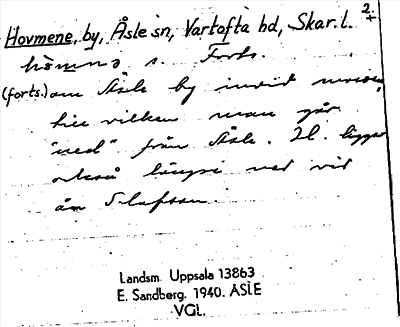 Hovmene, by, Åsle sn, Vartofta hd, Skar. l. 2.
s. Forts.
(forts.) om Åsle by invid mossen,
till vilken man går
"ned" från Åsle. H. ligger
också längst ned vid
ån Slafsan.
Landsm. Uppsala 13863
E. Sandberg. 1940. ÅSLE
VGL.